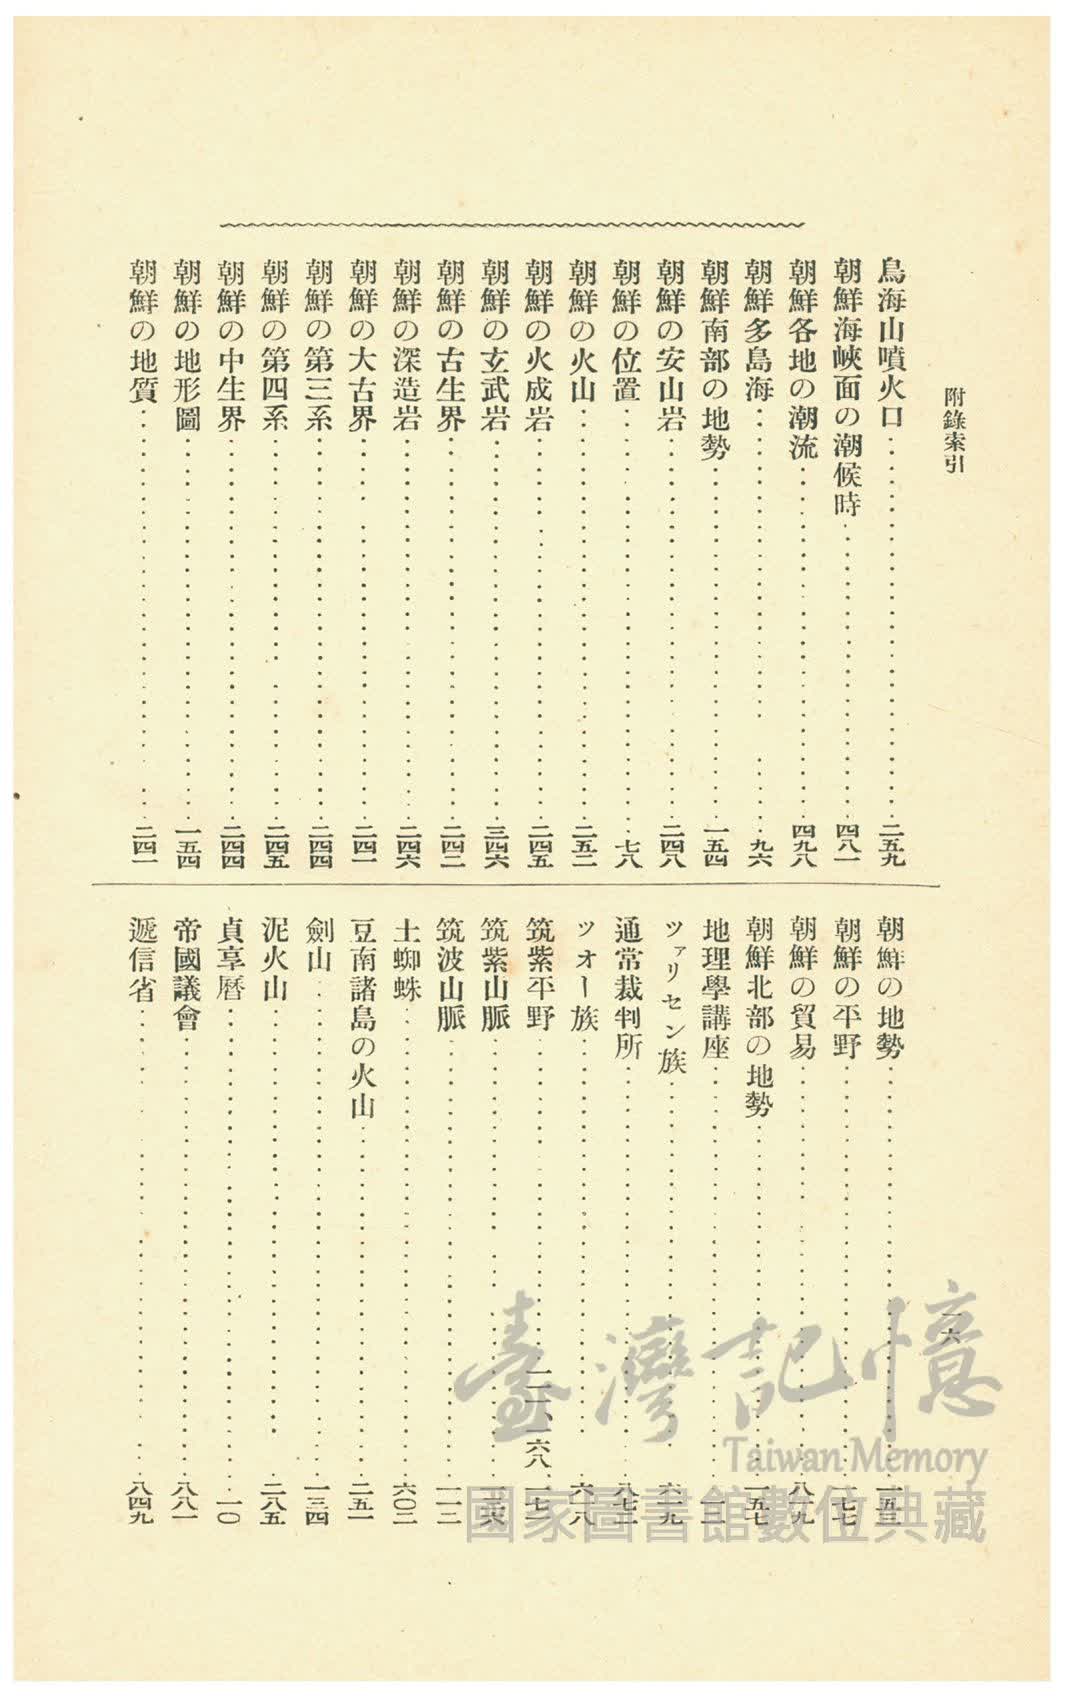 附錄索引
一六
鳥海山噴火口 二五九
朝鮮海峽面の潮候時 四八一
朝鮮各地の潮流 四九八
朝鮮多島海 九六
朝鮮南部の地勢 一五四
朝鮮の安山岩 二四八
朝鮮の位置 七八
朝鮮の火山 二五二
朝鮮の火成岩 二四五
朝鮮の玄武岩 三四六
朝鮮の古生界 二四二
朝鮮の深造岩 二四六
朝鮮の大古界 二四一
朝鮮の第三系 二四四
朝鮮の第四系 二四五
朝鮮の中生界 二四四
朝鮮の地形圖 一五四
朝鮮の地質 二四一
朝鮮の地勢 一五三
朝鮮の平野 一七七
朝鮮の貿易 八一九
朝鮮北部の地勢 一五七
地理學講座 一二
ツァリセン族 六一九
通常裁判所
ツオー族 六一八
筑紫平野
筑紫山脈
筑波山脈 一一三
土蜘蛛 六〇二
豆南諸島の火山 二五一
劍山 一三四
泥火山 二八五
貞享曆 一〇
帝國議會 八八一
遞信省 八四九
臺灣記憶
Taiwan Memory
國家圖書館數位典藏